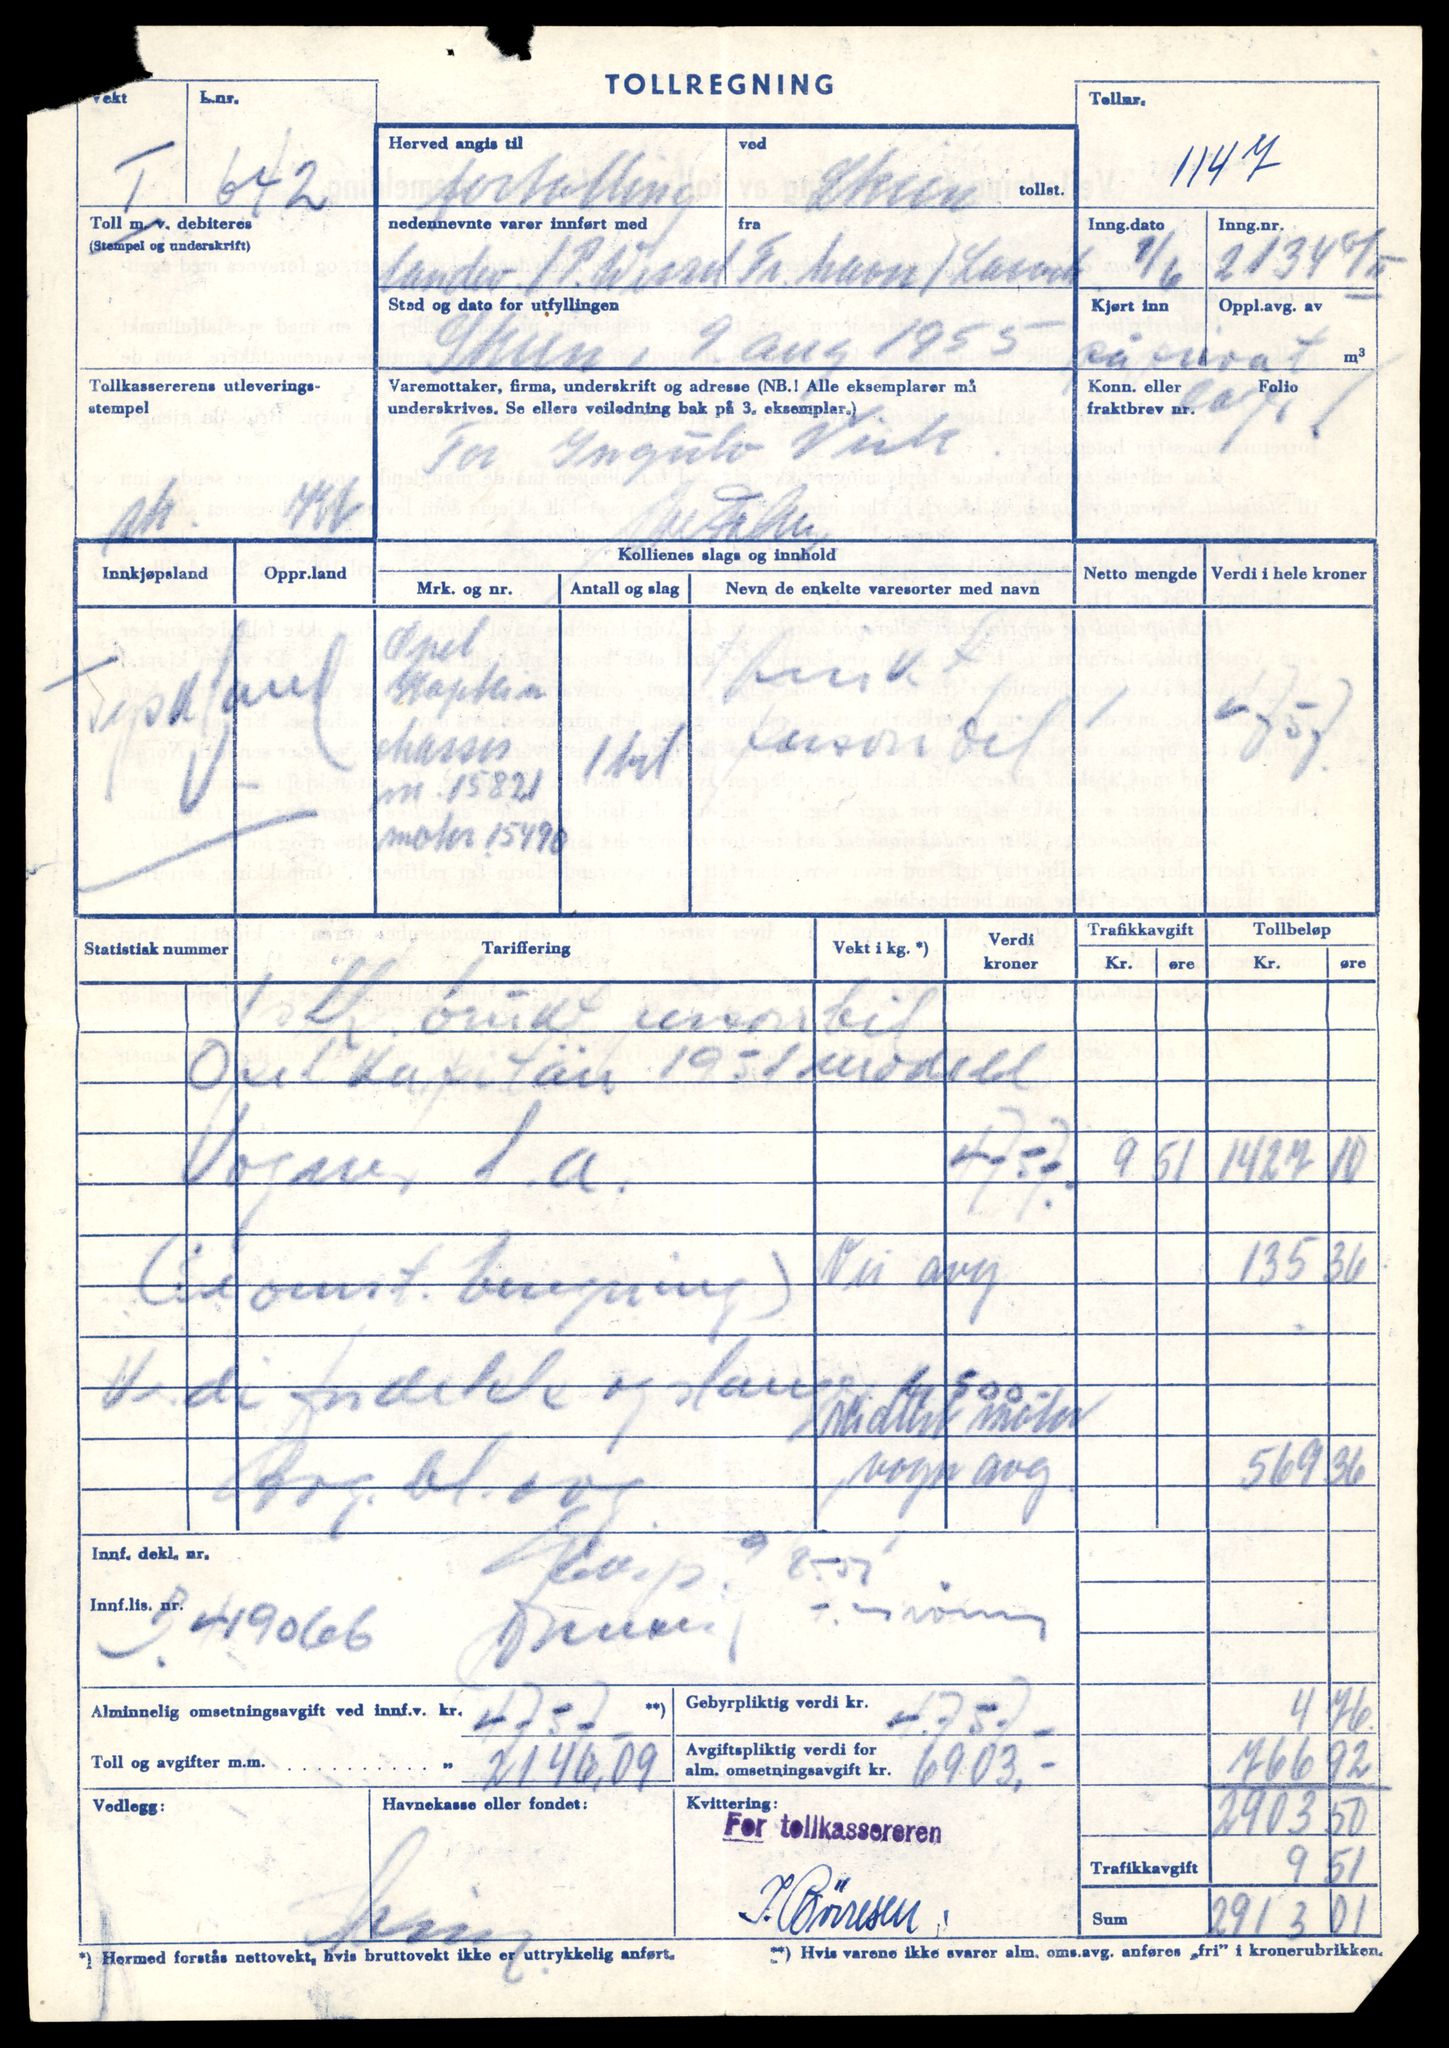 TOLLREGNING
Vekt L.nr.
I 642
Herved angis til ved
fortolling Skien tollst.
Tollnr.
1147
Toll m. v. debiteres
(Stempel og underskrift)
nedennevnte varer innført med fra
Fr. havn / Larvik
Inng.dato Inng.nr.
2134
Sted og dato for utfyllingen
Skien, 9 aug 1955
Kjørt inn Oppl.avg. av
på privat m³
Tollkassererens utleverings-
stempel
Varemottaker, firma, underskrift og adresse (NB.! Alle eksemplarer må
underskrives. Se ellers veiledning bak på 3. eksemplar.)
For Ingulv Vik.
Konn. eller Folio
fraktbrev nr.
lager
Innkjøpsland Oppr.land Kollienes slags og innhold Netto mengde Verdi i hele kroner
Mrk. og nr. Antall og slag Nevn de enkelte varesorter med navn
Tyskland
Opel
Kaptein
chasses
nr. 15821
motor 15490
1 bil
brukt
personbil
4757.
Statistisk nummer Tariffering Vekt i kg. *) Verdi kroner Trafikkavgift Tollbeløp
Kr. øre Kr. øre
1 stk. brukt personbil
Opel Kapitän 1951 modell
Vogner 1. a. 4757.- 9 51 1427 10
( omst. beregning) avg 135 36
Verdi for dekk og slange 500.-
motor
vogn avg 569 36
avg
Innf. dekl. nr.
Innf.lis. nr.
49066
Alminnelig omsetningsavgift ved innf.v. kr. 4757.- **) Gebyrpliktig verdi kr. 4757.- 4 76
Toll og avgifter m.m. . . . . . . . . . . „ 2146,09 Avgiftspliktig verdi for
alm. omsetningsavgift kr. 6903,- 766 92
Vedlegg: Havnekasse eller fondet: Kvittering: 2903 50
For tollkassereren
Trafikkavgift 9 51
I. Börresen
Sum 2913 01
*) Hermed forstås nettovekt, hvis bruttovekt ikke er uttrykkelig anført. **) Hvis varene ikke svarer alm. oms.avg. anføres „fri" i kronerubrikken.